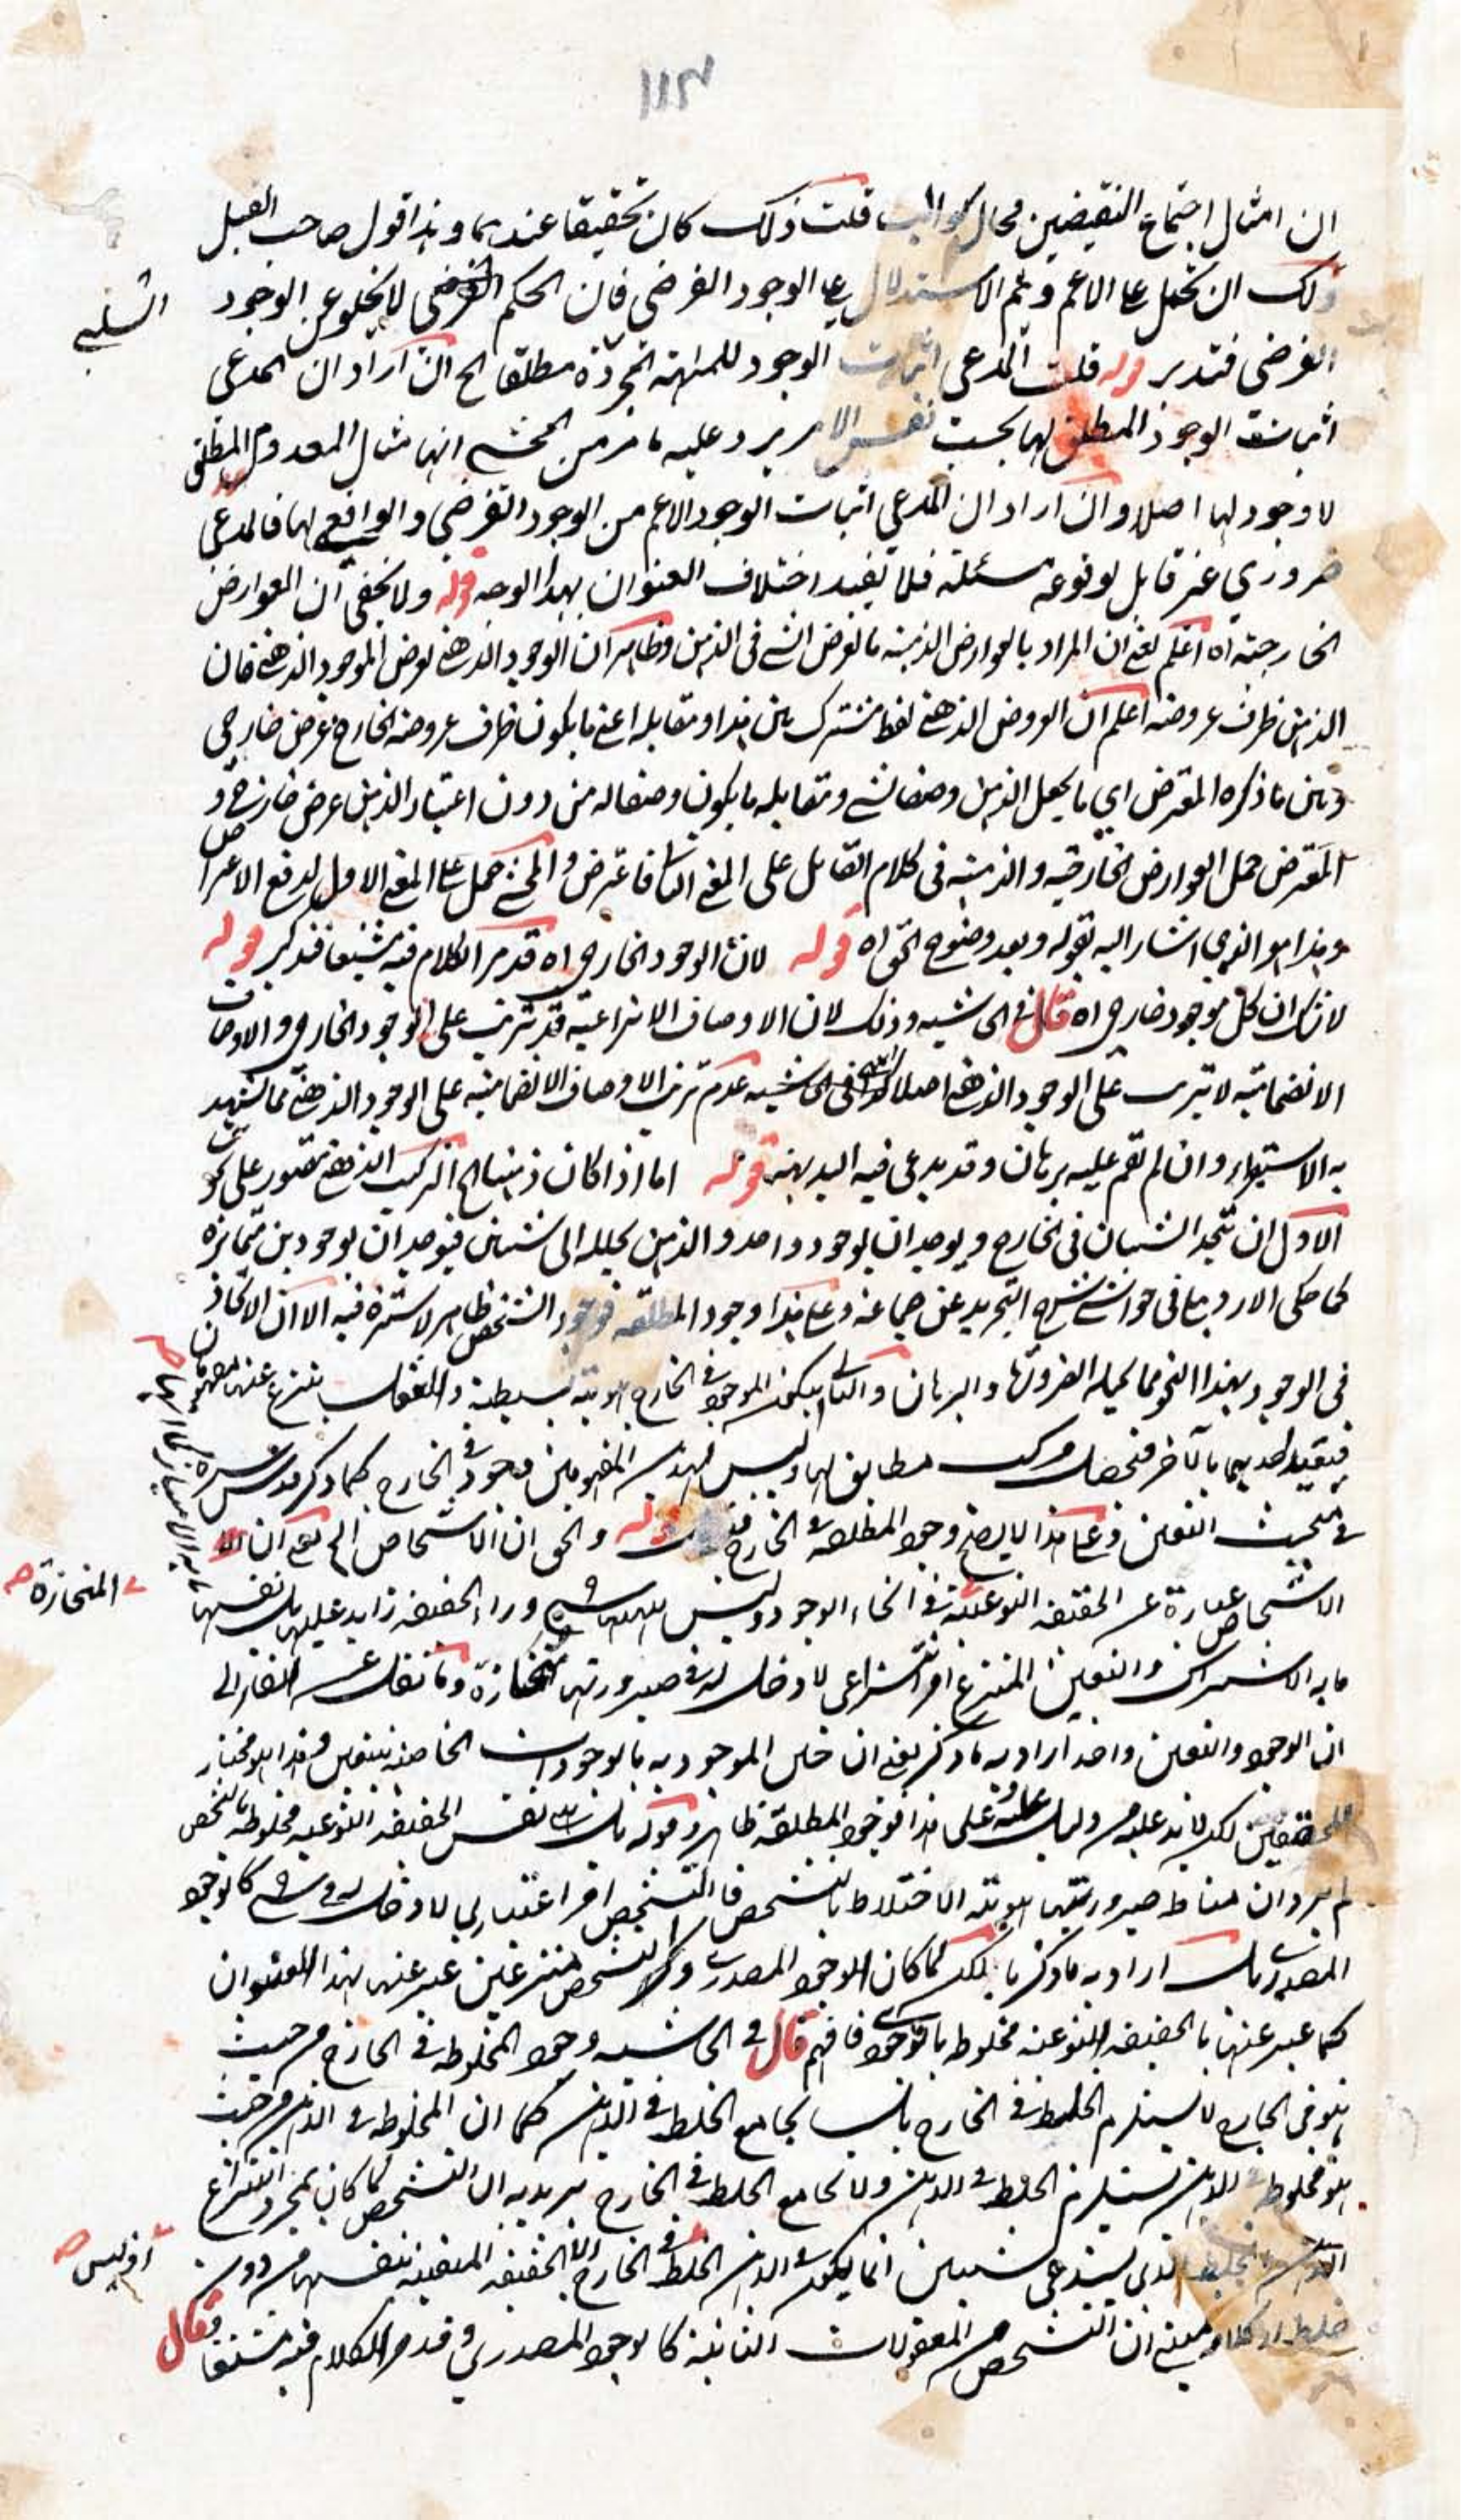 ١١٣
ان امثال اجتماع النقيضين محال قلت ذلك كان تحقيقا عندهما وهذا قول صاحب القيل
ذلك ان تحمل على الاعم ويتم الاستدلال على الوجود الفرضي فان الحكم لا يخلو عن الوجود
السلبي
الفرضي فتدبر قوله قلت المدعى اثبات الوجود للمهية المجردة مطلقا الخ ان اراد ان المدعى
اثبات الوجود المطلق لها بحسب نفس الامر يرد عليه ما مر من المحشي انها مثال المعدوم المطلق
لا وجود لها اصلا وان اراد ان المدعى اثبات الوجود الاعم من الوجود الفرضي والواقعي لها فالمدعى
ضروري غير قابل لوقوعه مسئلة فلا يفيد اختلاف العنوان بهذا الوجه قوله ولا يخفى ان العوارض
الخارجية اه اعلم يعني ان المراد بالعوارض الذهنية ما تعرض الشي في الذهن وظاهر ان الوجود الذهني يعرض الموجود الذهني فان
الذهن ظرف عروضه اعلم ان العروض الذهني لفظ مشترك بين هذا ومقابله اعني ما يكون ظرف عروضه الخارج عرض خارجي
وبين ما ذكره المعترض اي ما يجعل الذهن وصفا لشي ومقابله ما يكون وصفا له من دون اعتبار الذهن عرض خارجي و
المعترض حمل العوارض الخارجية والذهنية في كلام القائل على المعنى الثاني فاعترض والمحشي حمل على المعنى الاول لدفع الاعتراض
وهذا هو الذي اشار اليه بقوله وبعد وضوح الحق اه قوله لان الوجود الخارجي اه قد مر الكلام فيه مشبعا فتذكر قوله
لا شك ان كل موجود خارجي اه قال في الحاشية وذلك لان الاوصاف الانتزاعية قد تترتب على الوجود الخارجي والاوصاف
الانضمامية لا تترتب على الوجود الذهني اصلا في الحاشية عدم ترتب الاوصاف الانضمامية على الوجود الذهني مما يشهد
به الاستقراء وان لم يقم عليه برهان وقد يدعى فيه البديهة قوله اما اذا كان ذهنيا الخ التركيب الذهني يتصور على نحوين
الاول ان يتحد الشيئان في الخارج ويوجدان بوجود واحد والذهن يحلله الى شيئين فيوجدان بوجودين متمايزة
كما حكى الاردبيلي في حواشي شرح التجريد عن جماعة وعلى هذا وجود المطلقة فوجود الشخص ظاهر لا سترة فيه الا ان الاتحاد
في الوجود بهذا النحو مما يحيله الضرورة والبرهان والثاني ان يكون الموجود في الخارج هوية بسيطة والعقل ينتزع عنها مفهومان
فيقيد احدهما بالآخر فتحصل مركب مطابق لها وليس لهذين المفهومين وجود في الخارج كما ذكر قدس سره
في مبحث التعين وعلى هذا لا يلزم وجود المطلقة في الخارج قوله والحق ان الاشخاص الخ يعني ان
الاشخاص عبارة عن الحقيقة النوعية في انحاء الوجود وليس للهيات شي وراء الحقيقة زايد عليها بل نفسها
المنحازة صح
ما به الاشتراك والتعين المنتزع امر انتزاعي لا دخل له في صيرورتها منحازة وما نقل عن الفارابي
ان الوجود والتعين واحد اراد به ما ذكر يعني ان الموجود به بالوجودات الخاصة يتعين وهذا هو مختار
المحققين لكن لا بد عليه من دليل على هذا فوجود المطلقة ظاهر وقوله بل نفس الحقيقة النوعية مخلوطة بالتشخص
لم يرد ان مناط صيرورتها هوية الاختلاط بالتشخص فان التشخص امر اعتباري لا دخل له في شي كالوجود
المصدري بل اراد به ما ذكرنا لكن لما كان الوجود المصدري والتشخص منتزعين عبر عنها بهذا العنوان
كما عبر عنها بالحقيقة النوعية مخلوطة بالوجود فافهم قال في الحاشية وجود المخلوطة في الخارج من حيث
هو في الخارج لا يستلزم الخلط في الخارج بل يجامع الخلط في الذهن كما ان المخلوطة في الذهن من حيث
هو مخلوطة في الذهن يستلزم الخلط في الذهن ولا يجامع الخلط في الخارج يريد به ان التشخص لما كان بمجرد انتزاع
الذهن فالخلط الذي يستدعي شيئين انما يكون في الذهن الخلط في الخارج الا الحقيقة المتعينة بنفسها من دون
اذ ليس صح
خلط ان التشخص من المعقولات الثانية كالوجود المصدري وقد مر الكلام فيه مشبعا وقال